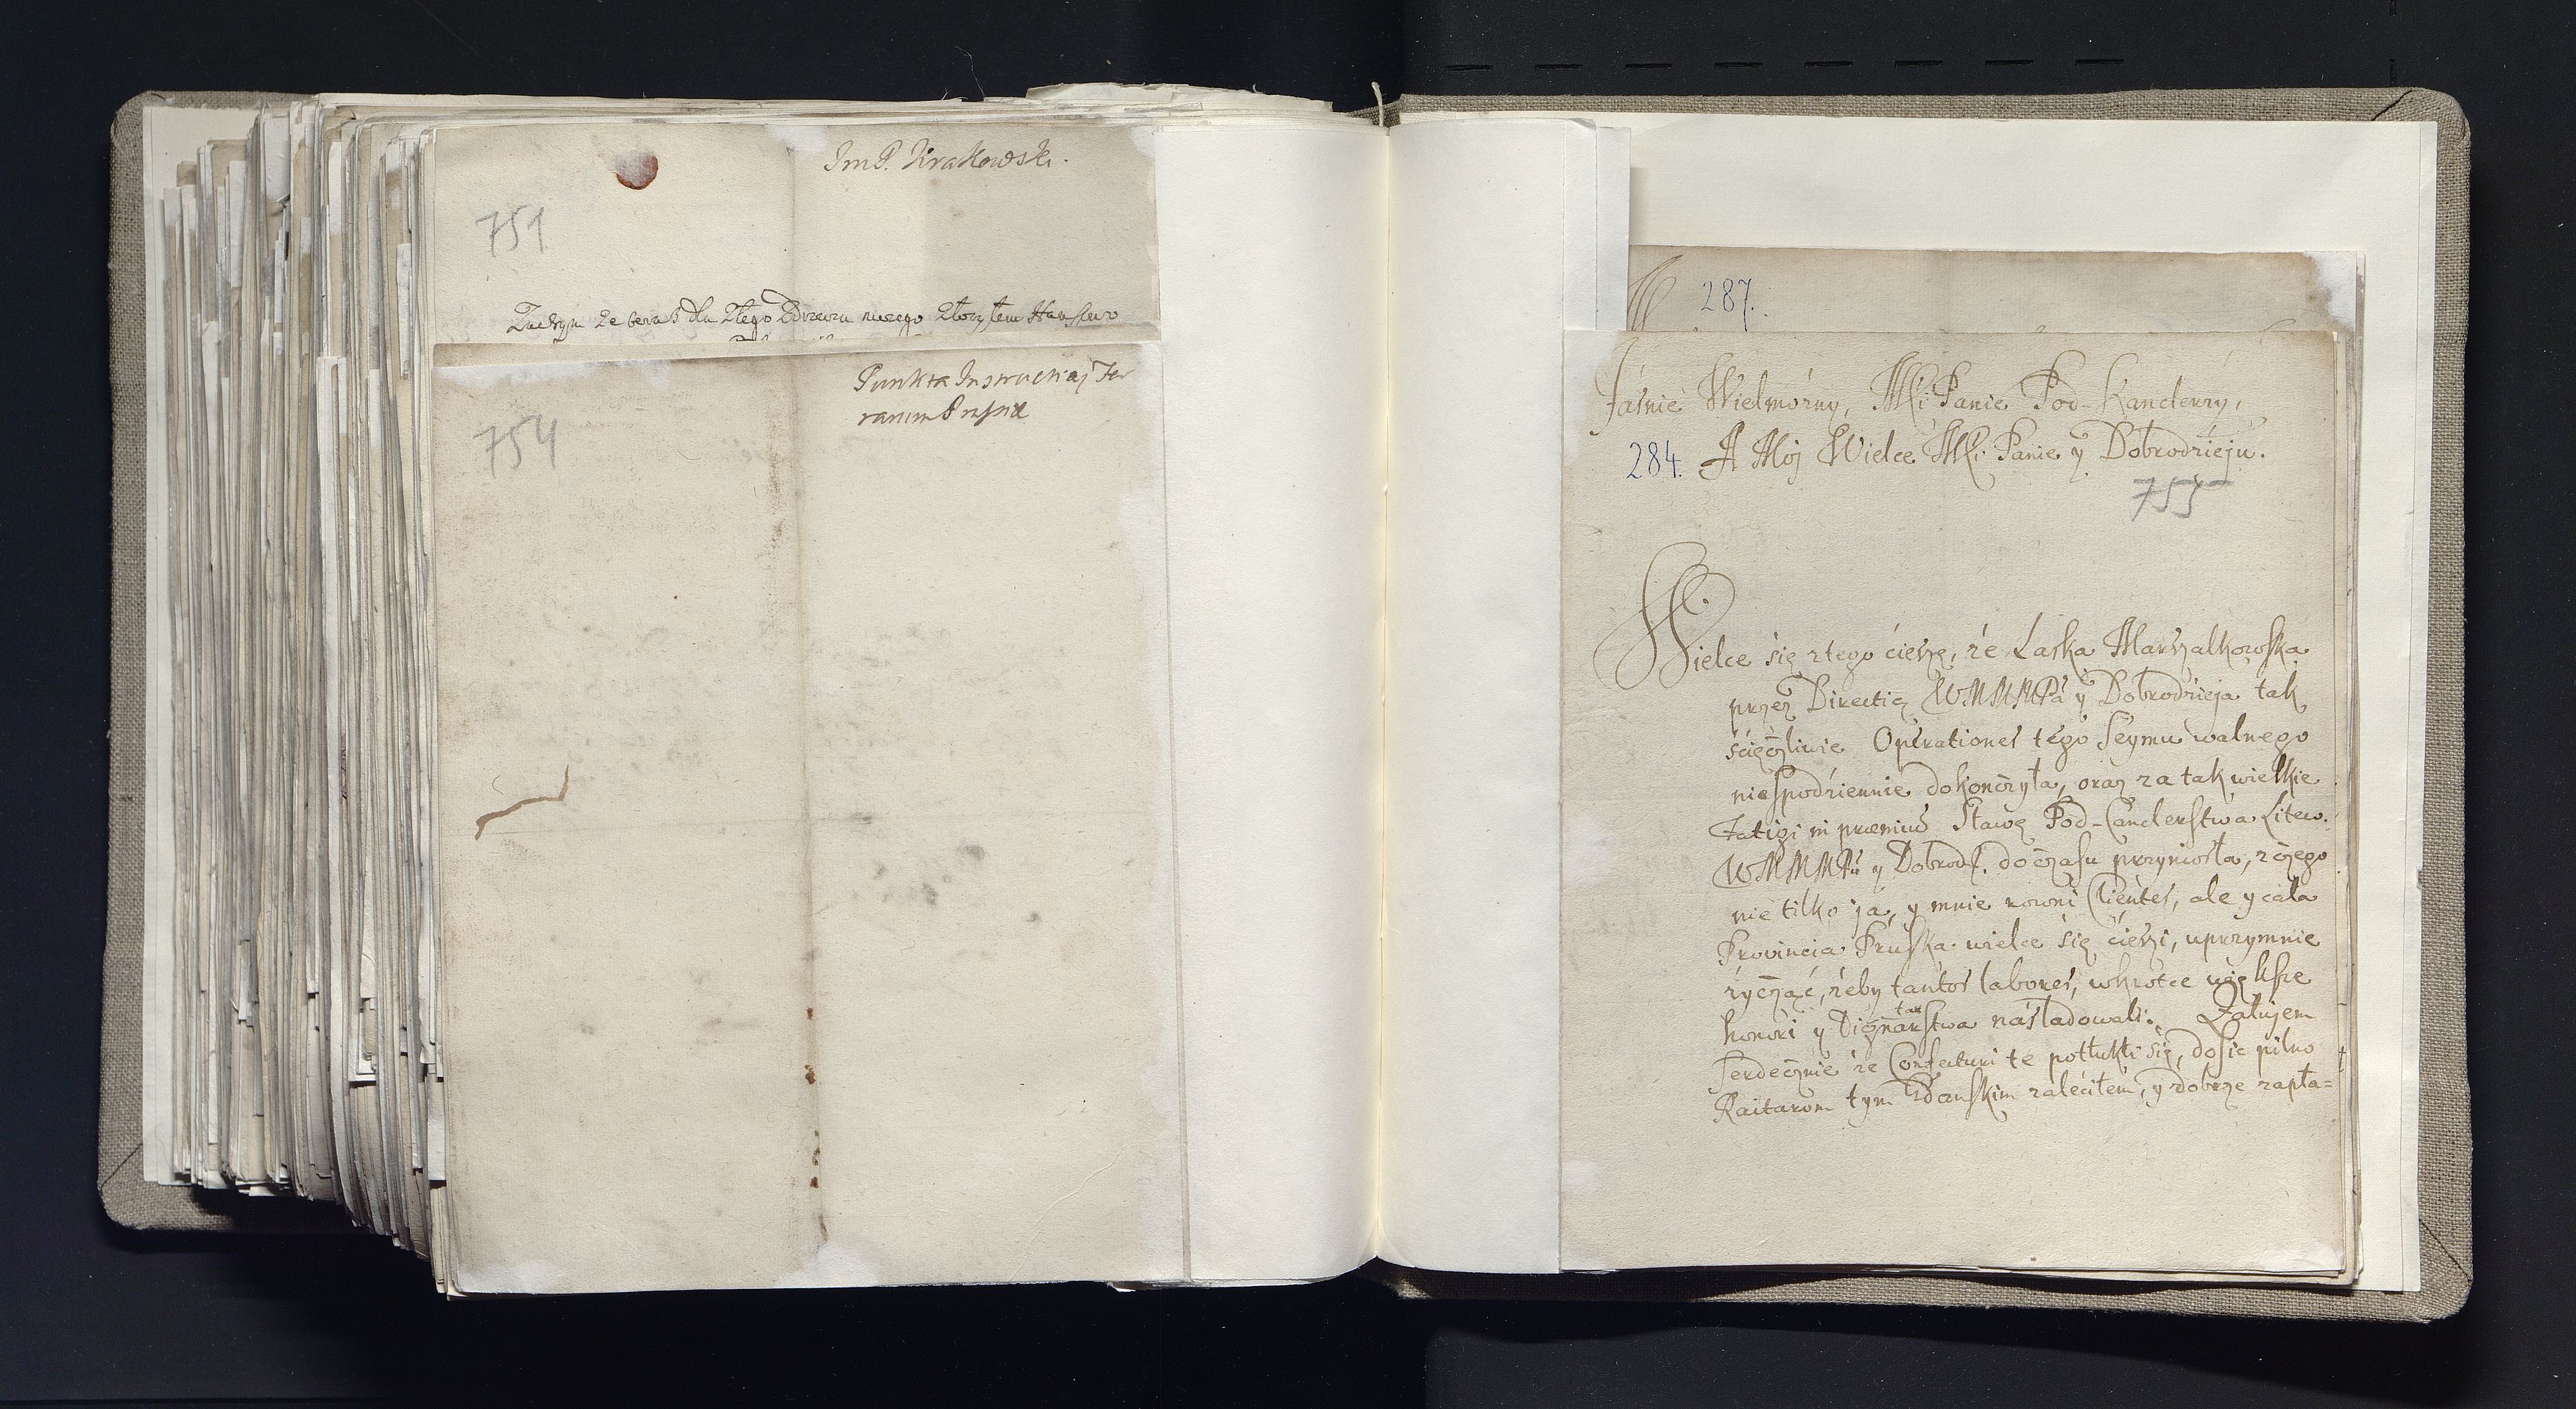 ImP. Krakowski.
751
Zaczym ze teraz dla złego Zdrowia mego
754
Punkta Instructiaj Ter
rarum Prussiae
287.
Jásnie Wielmózny, Mći Panie Pod-Kanclerzy,
284. A Mój Wielce Mći Panie y Dobrodzieju.
755
Wielce się z tego cieszę, że Laska Marszalkowska
przez Directię WMMMPa y Dobrodzieja tak
sczęzliwie Operationes tego Seymu walnego
niespodziennie dokonczyła, oraz za tak wielkie
Fatigi in præmiũ Sławę Pod-Canclerstwa Litew.
WMMMPu y Dobrodz. do czasu przyniosła, z czego
nie tilko ja, y mnie rowni Clientes, ale y cała
Provincia Pruska wielce się cieszi, uprzymnie
życząć, żeby tantos labores, wkrotce większe
honori y Dignitarstwa násladowali. Załujem
Serdecznie że Confecturi te potłukli się, dosic pilno
Raitarom tym Gdanskim zaleciłem, y dobrze zapła=